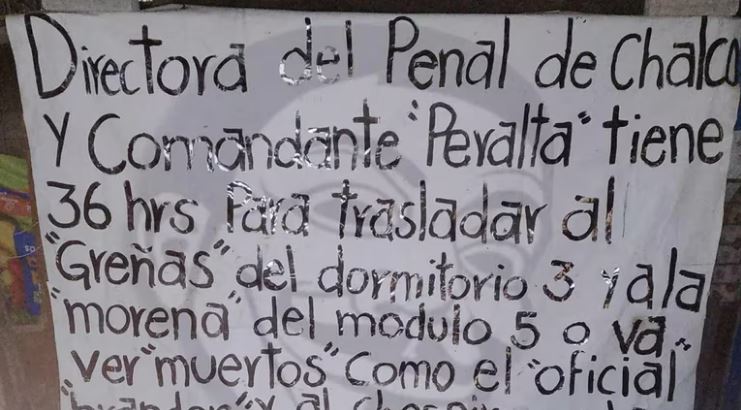 Directora del Penal de Chalco
Y Comandante "Peralta" tiene
36 hrs Para trasladar al
"Greñas" del dormitorio 3 y a la
"morena" del modulo 5 o va
ver "muertos" Como el "oficial"
"brandon" y al